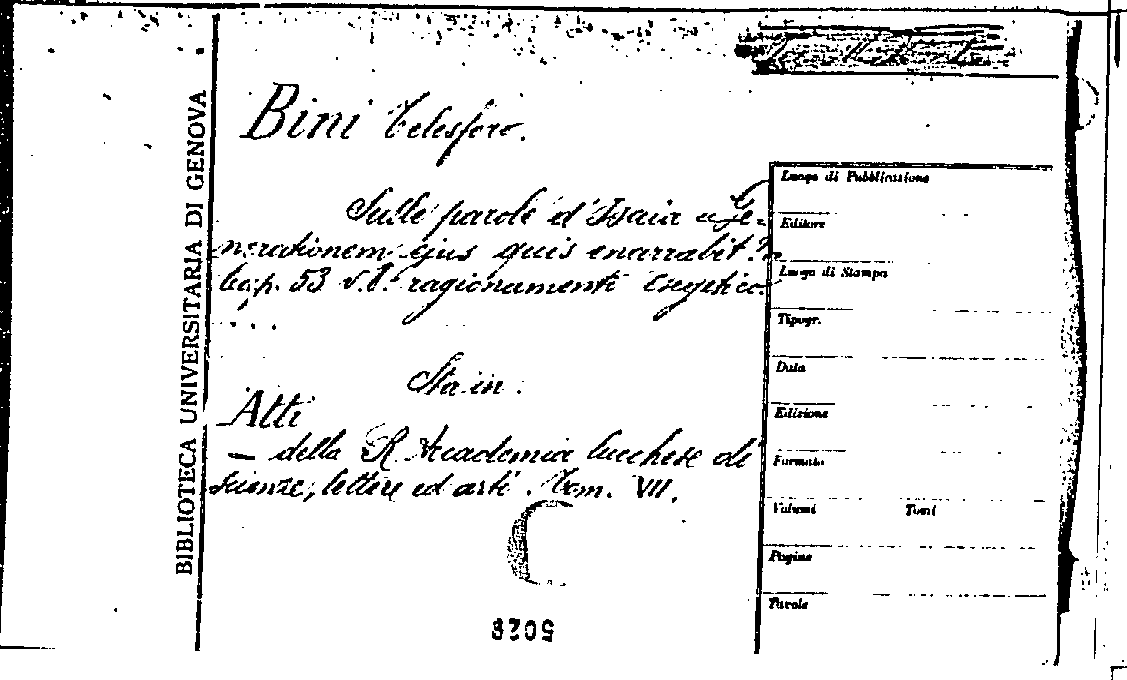 BIBLIOTECA UNIVERSITARIA DI GENOVA
Bini Telesforo.
Sulle parole d'Isaia "Ge-
nerationem ejus quis enarrabit?"
Cap. 53 v. 8. ragionamento esegetico.
Sta in:
Atti
— della R. Accademia lucchese di
scienze, lettere ed arti. Tom. VII.
Luogo di Pubblicazione
Editore
Luogo di Stampa
Tipogr.
Data
Edizione
Formato
Volumi Tomi
Pagine
Tavole